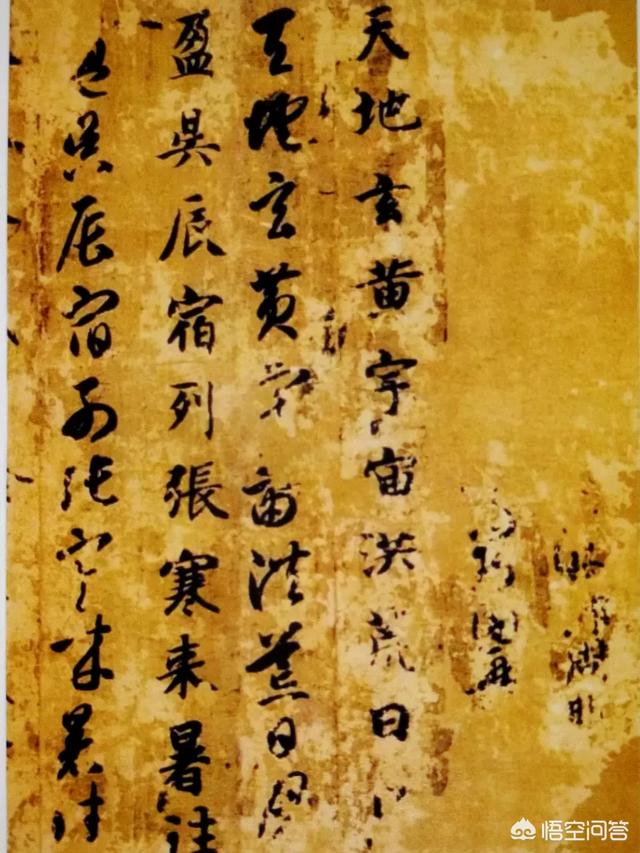 天地玄黄宇宙洪荒日
天地玄黄宇宙洪荒日月
盈昃辰宿列張寒来暑往
盈昃辰宿列張寒来暑往
悟空问答